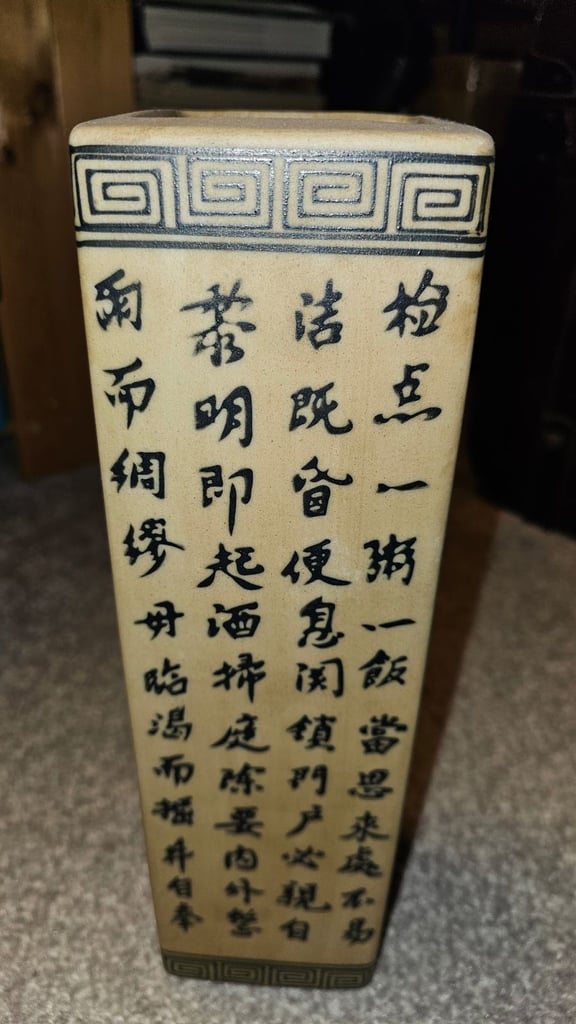 雨而綢繆毋臨渴而掘井自奉
黎明即起洒掃庭除要内外整
洁既昏便息関鎖門户必親自
检点一粥一飯當思来處不易